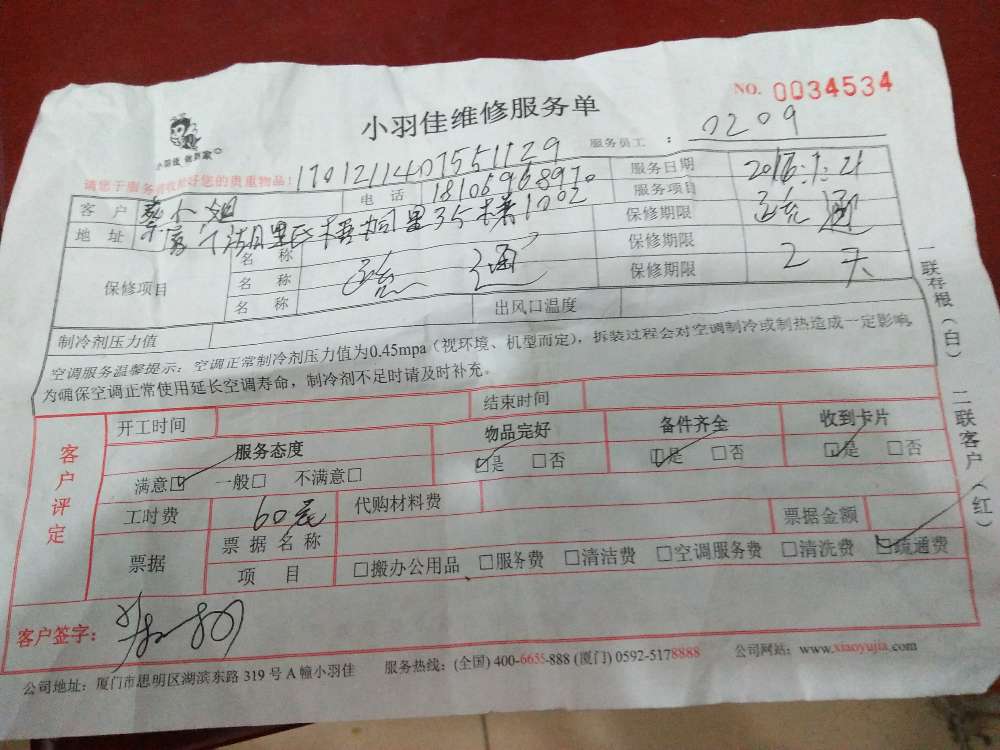 小羽佳维修服务单
NO. 0034534
小羽佳 做到家
服务员工 : 0209
请您于服务前收拾好您的贵重物品! 1701211407551129
客户 小姐 电话 18106968970 服务日期
地址 厦门湖里区梧桐里35楼1002 服务项目 疏通
保修项目 名称 保修期限
名称 疏通 保修期限 2天
名称 保修期限
制冷剂压力值 出风口温度
空调服务温馨提示：空调正常制冷剂压力值为0.45mpa（视环境、机型而定），拆装过程会对空调制冷或制热造成一定影响。
为确保空调正常使用延长空调寿命，制冷剂不足时请及时补充。
客户评定
开工时间 结束时间
服务态度 物品完好 备件齐全 收到卡片
满意☑ 一般□ 不满意□ ☑是 □否 ☑是 □否 ☑是 □否
工时费 60元 代购材料费
票据 票据名称 票据金额
项目 □搬办公用品 □服务费 □清洁费 □空调服务费 □清洗费 ☑疏通费
客户签字：
公司地址：厦门市思明区湖滨东路 319 号 A 幢小羽佳 服务热线：(全国) 400-6655-888 (厦门) 0592-5178888 公司网站：www.xiaoyujia.com
一联存根（白） 二联客户（红）